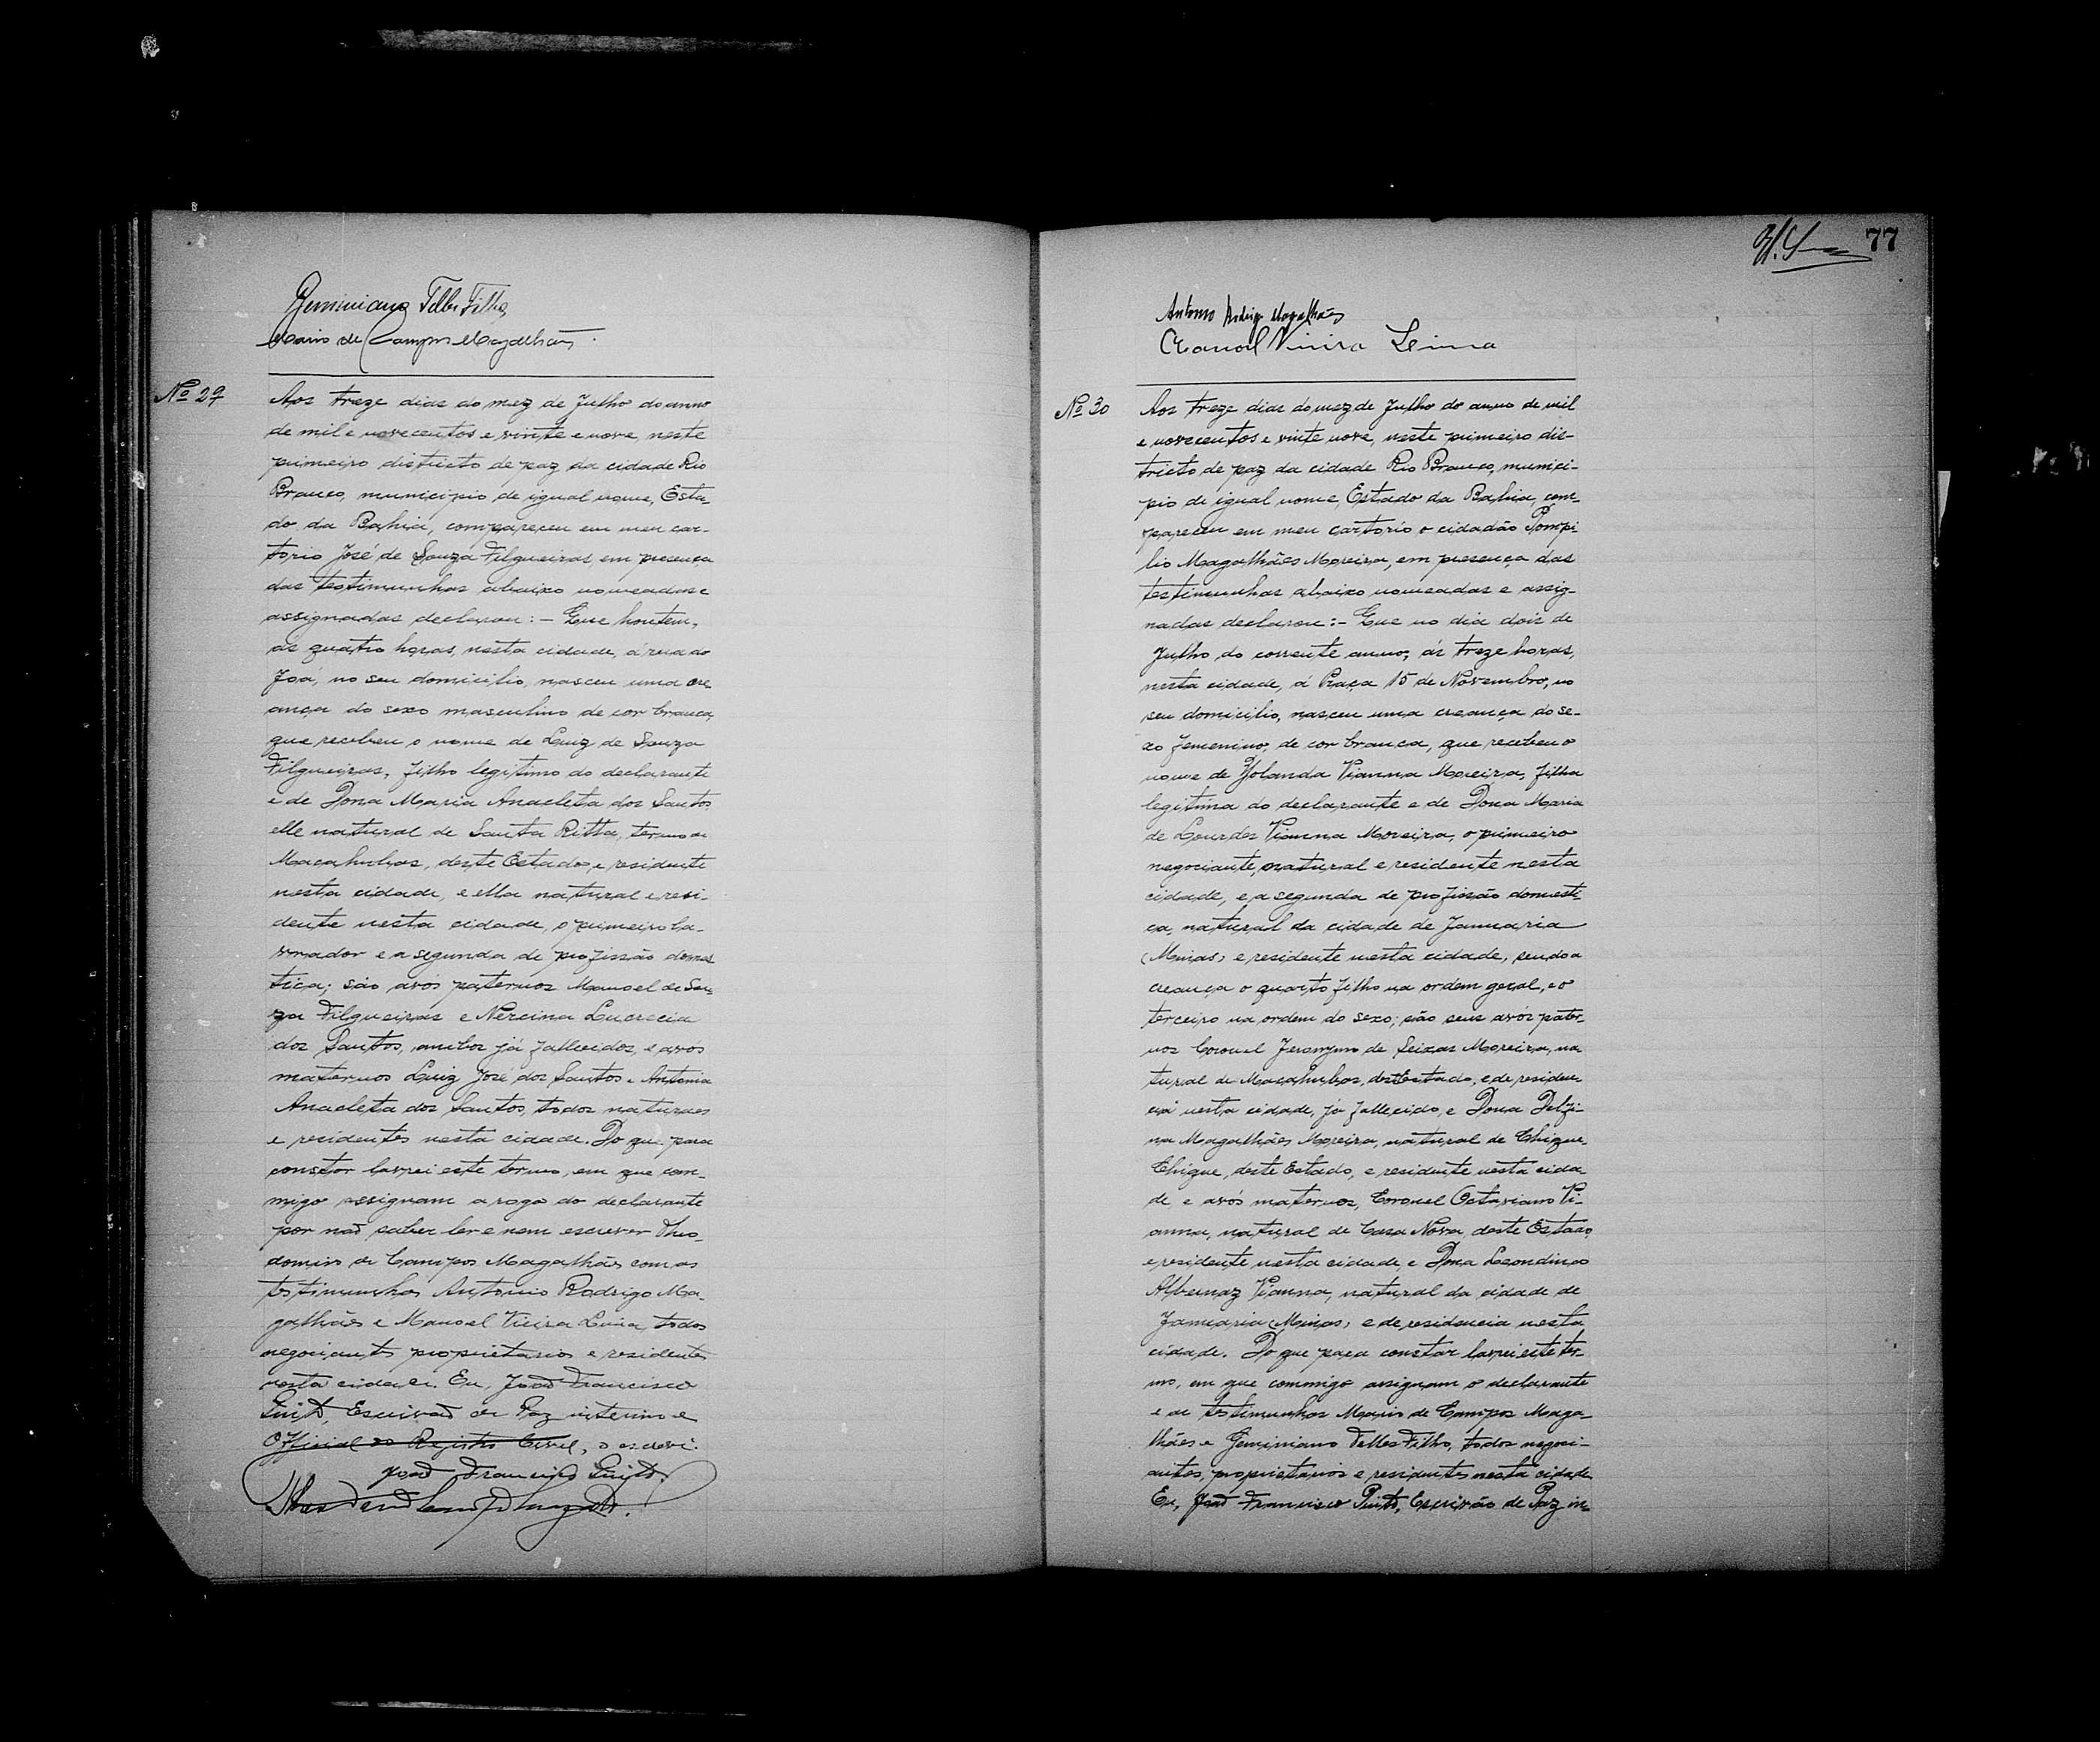 Geminiano Telles Filho
Mario de Campos Magalhães.
Nº 29
Aos treze dias do mez de Julho do anno
de mil e novecentos e vinte e nove, neste
primeiro districto de paz da cidade Rio
Branco, municipio de igual nome, Esta-
do da Bahia, compareceu em meu car-
torio José de Souza Filgueiras, em presença
das testimunhas abaixo nomeadas e
assignadas declarou: - Que hontem,
as quatro horas, nesta cidade, á rua do
Joá, no seu domicilio, nasceu uma cre
ança do sexo masculino de cor branca,
que recebeu o nome de Luiz de Souza
Filgueiras, filho legitimo do declarante
e de Dona Maria Anacleta dos Santos
elle natural de Santa Ritta, termo de
Macahubas, deste Estado, e residente
nesta cidade, e ella natural e resi-
dente nesta cidade, o primeiro la-
vrador e a segunda de profissão domes
tica; são avós paternos Manoel de Sou
za Filgueiras e Nercina Lucrecia
dos Santos, ambos já fallecidos, e avos
maternos Luiz José dos Santos e Antonia
Anacleta dos Santos, todos naturaes
e residentes nesta cidade. Do que para
constar lavrei este termo, em que com-
migo assignam a rogo do declarante
por não saber ler e nem escrever Theo-
domiro de Campos Magalhães com as
testimunhas Antonio Rodrigo Ma-
galhães e Manoel Vieira Lima todos
negociantes proprietarios e residentes
nesta cidade. Eu, João Francisco
Pinto, Escrivão de Paz interino e
Official do Registro Civil, o escrevi.
João Francisco Pinto.
77
Antonio Rodrigo Magalhães
Manoel Vieira Lima
Nº 30
Aos treze dias do mez de Julho do anno de mil
e novecentos e vinte nove, neste primeiro dis-
tricto de paz da cidade Rio Branco, munici-
pio de igual nome, Estado da Bahia, com-
pareceu em meu cartorio o cidadão Pompi
lio Magalhães Moreira, em presença das
testimunhas abaixo nomeadas e assig-
nadas declarou: - Que no dia dois de
Julho do corrente anno, ás treze horas,
nesta cidade, á Praça 15 de Novembro, no
seu domicilio, nasceu uma creança do se-
xo femenino, de cor branca, que recebeu o
nome de Yolanda Vianna Moreira, filha
legitima do declarante e de Dona Maria
de Lourdes Vianna Moreira, o primeiro
negociante, natural e residente nesta
cidade, e a segunda de profissão domesti-
ca, natural da cidade de Januaria
(Minas) e residente nesta cidade, sendo a
creança o quarto filho na ordem geral, e o
terceiro na ordem do sexo; são seus avós pater-
nos Coronel Jeronymo de Seixas Moreira, na
tural de Macahubas, deste Estado, e de residen
cia nesta cidade, já fallecido, e Dona Delfi-
na Magalhães Moreira, natural de Chique-
Chique, deste Estado, e residente nesta cida
de e avós maternos, Coronel Octaviano Vi-
anna, natural de Casa Nova, deste Estado,
e residente nesta cidade, e Dona Leondina
Albernaz Vianna, natural da cidade de
Januaria (Minas) e de residencia nesta
cidade. Do que para constar lavrei este ter-
mo, em que commigo assignam o declarante
e as testimunhas Mario de Campos Maga-
lhães e Geminiano Telles Filho, todos negoci-
antes, proprietarios e residentes nesta cidade
Eu, João Francisco Pinto, Escrivão de Paz in-